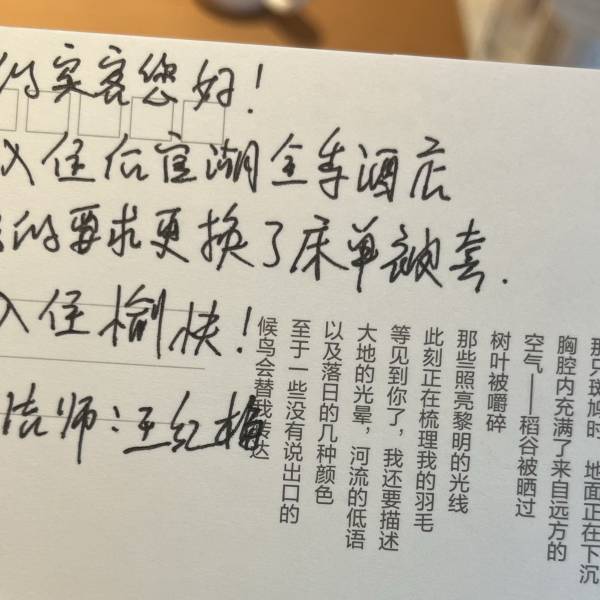 的宾客您好！
入住后官湖全季酒店
的要求更换了床单被套.
入住愉快！
洁师：王红梅
那只斑鸠时 地面正在下沉
胸腔内充满了来自远方的
空气——稻谷被晒过
树叶被嚼碎
那些照亮黎明的光线
此刻正在梳理我的羽毛
等见到你了，我还要描述
大地的光晕，河流的低语
以及落日的几种颜色
至于一些没有说出口的
候鸟会替我表达